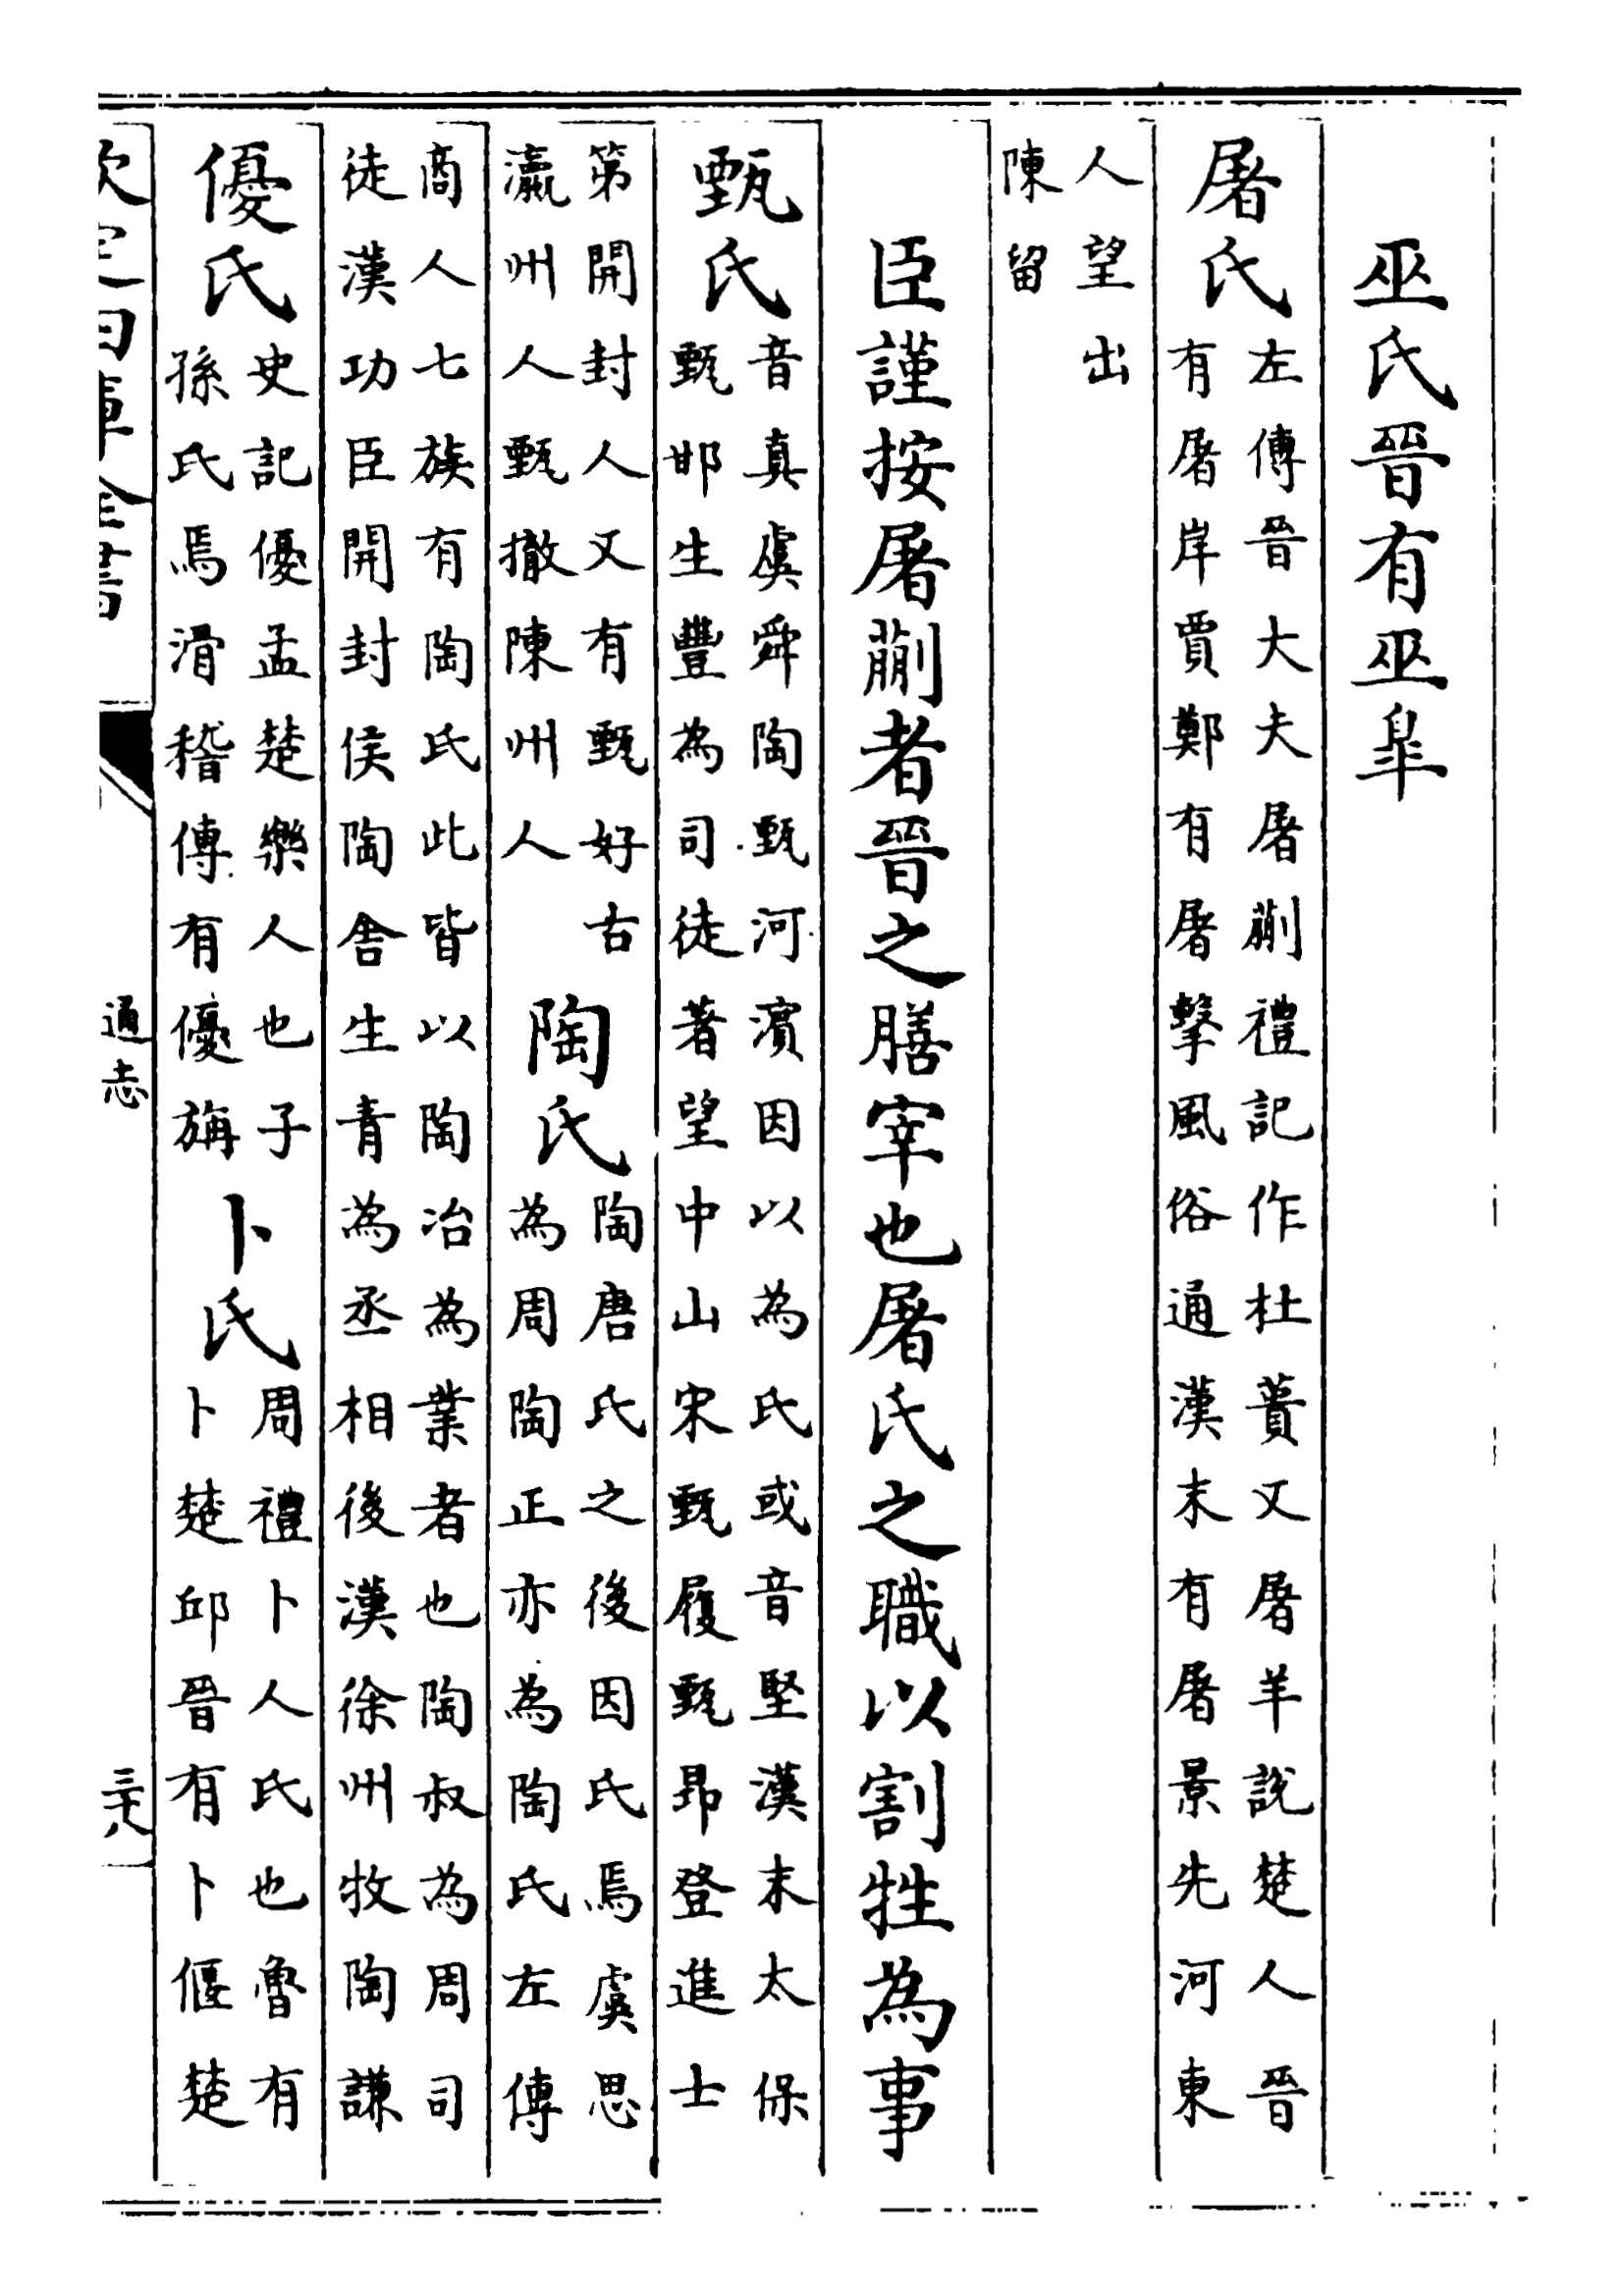 巫氏晉有巫臯
屠氏
左傳晉大夫屠蒯禮記作杜蕢又屠羊說楚人晉
有屠岸賈鄭有屠擊風俗通漢末有屠景先河東
人望出
陳留
臣謹按屠蒯者晉之膳宰也屠氏之職以割牲為事
甄氏
音真虞舜陶甄河濱因以為氏或音堅漢末太保
甄邯生豐為司徒著望中山宋甄履甄昂登進士
第開封人又有甄好古
瀛州人甄撤陳州人
陶氏
陶唐氏之後因氏焉虞思
為周陶正亦為陶氏左傳
商人七族有陶氏此皆以陶冶為業者也陶叔為周司
徒漢功臣開封侯陶舍生青為丞相後漢徐州牧陶謙
優氏
史記優孟楚樂人也子
孫氏焉滑稽傳有優旃
卜氏
周禮卜人氏也魯有
卜楚邱晉有卜偃楚
欽定四庫全書
通志
三十八